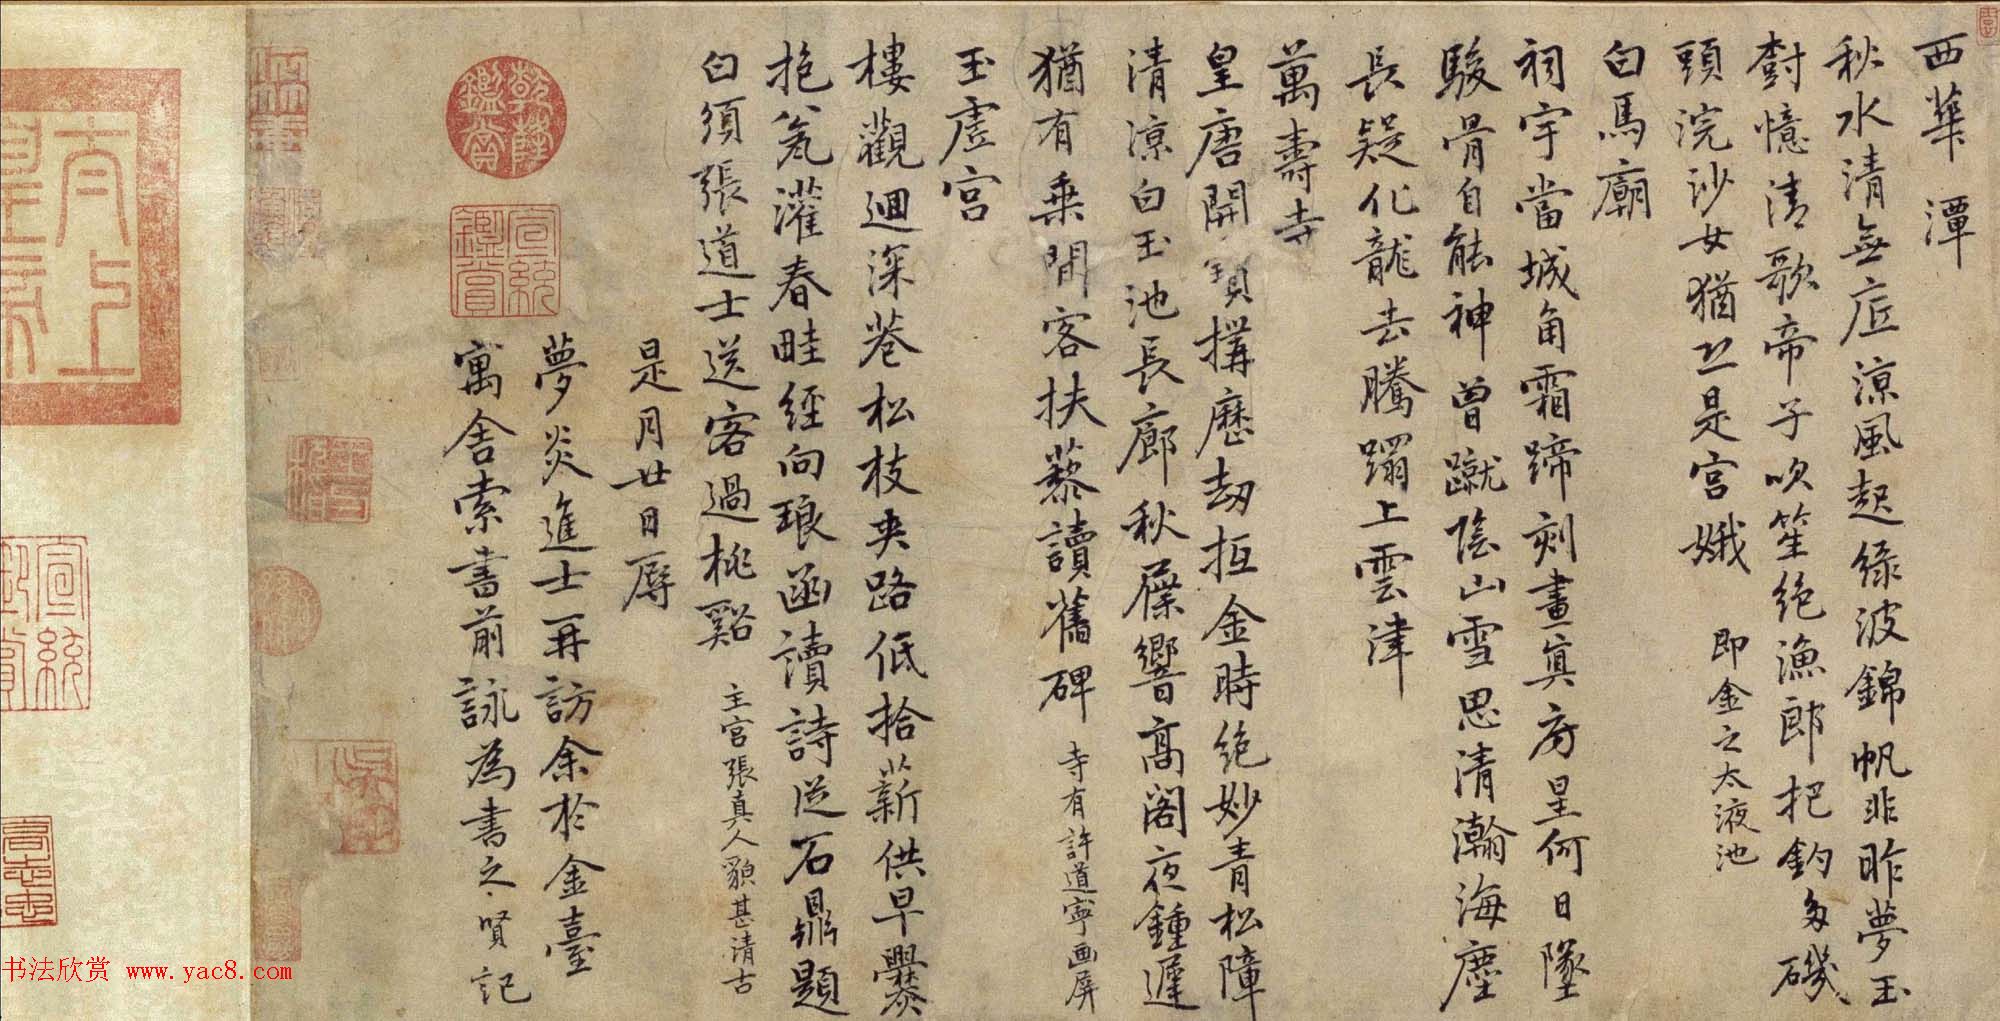 西華潭
秋水清無底涼風起綠波錦帆非昨夢玉
樹憶清歌帝子吹笙絕漁郎把釣多磯
頭浣沙女猶恐是宮娥 即金之太液池
白馬廟
祠宇當城角霜蹄刻畫真房星何日墜
駿骨自能神曾蹴陰山雪思清瀚海塵
長疑化龍去騰躍上雲津
萬壽寺
皇唐開寶搆歷劫抵金時絕妙青松障
清涼白玉池長廊秋屧響高閣夜鐘遲
猶有乘閒客扶藜讀舊碑 寺有許道寧画屏
玉虛宮
樓觀迴深巷松枝夾路低拾薪供早爨
抱瓮灌春畦經向琅函讀詩從石鼎題
白須張道士送客過桃谿 主宮張真人貌甚清古
是月廿日
夢炎進士再訪余於金臺
寓舍索書前詠為書之 賢記
乾隆鑑賞
宣統鑑賞
太上
书法欣赏 www.yac8.com